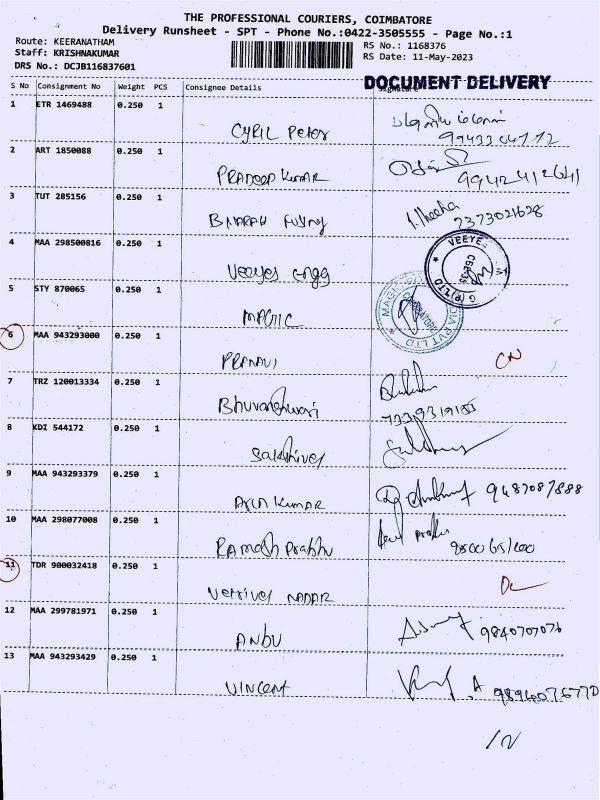 THE PROFESSIONAL COURIERS, COIMBATORE
Delivery Runsheet - SPT - Phone No.:0422-3505555 - Page No.:1
Route: KEERANATHAM
Staff: KRISHNAKUMAR
DRS No.: DCJB116837601
RS No.: 1168376
RS Date: 11-May-2023
DOCUMENT DELIVERY
S No Consignment No Weight PCS Consignee Details Signature
1 ETR 1469488 0.250 1
CYRIL Peter
2 ART 1850088 0.250 1
PRADEEP KUMAR
3 TUT 285156 0.250 1
BHARAH
7373021628
4 MAA 298500816 0.250 1
Veeyes engg
VEEYE
5 STY 870065 0.250 1
MAGIC
6 MAA 943293000 0.250 1
PRANAVI
CN
7 TRZ 120013334 0.250 1
Bhuvaneshwari
8 KDI 544172 0.250 1
Sakthivel
9 MAA 943293379 0.250 1
Arun Kumar
9487087888
10 MAA 298077008 0.250 1
Ramesh Prabhu
11 TDR 900032418 0.250 1
Vetrivel NADAR
DL
12 MAA 299781971 0.250 1
ANBU
9840707076
13 MAA 943293429 0.250 1
VINCENT